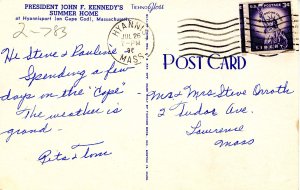 PRESIDENT JOHN F. KENNEDY'S
SUMMER HOME
at Hyannisport (on Cape Cod), Massachusetts
2-783
HYANNIS
JUL 26
PM
MASS.
U.S. POSTAGE 3¢
LIBERTY
POST CARD
Hi Steve & Pauline
Spending a few
days on the "Cape"
The weather is
grand -
Rita & Tom
Mr & Mrs Steve
2 Tudor Ave
Lawrence
Mass